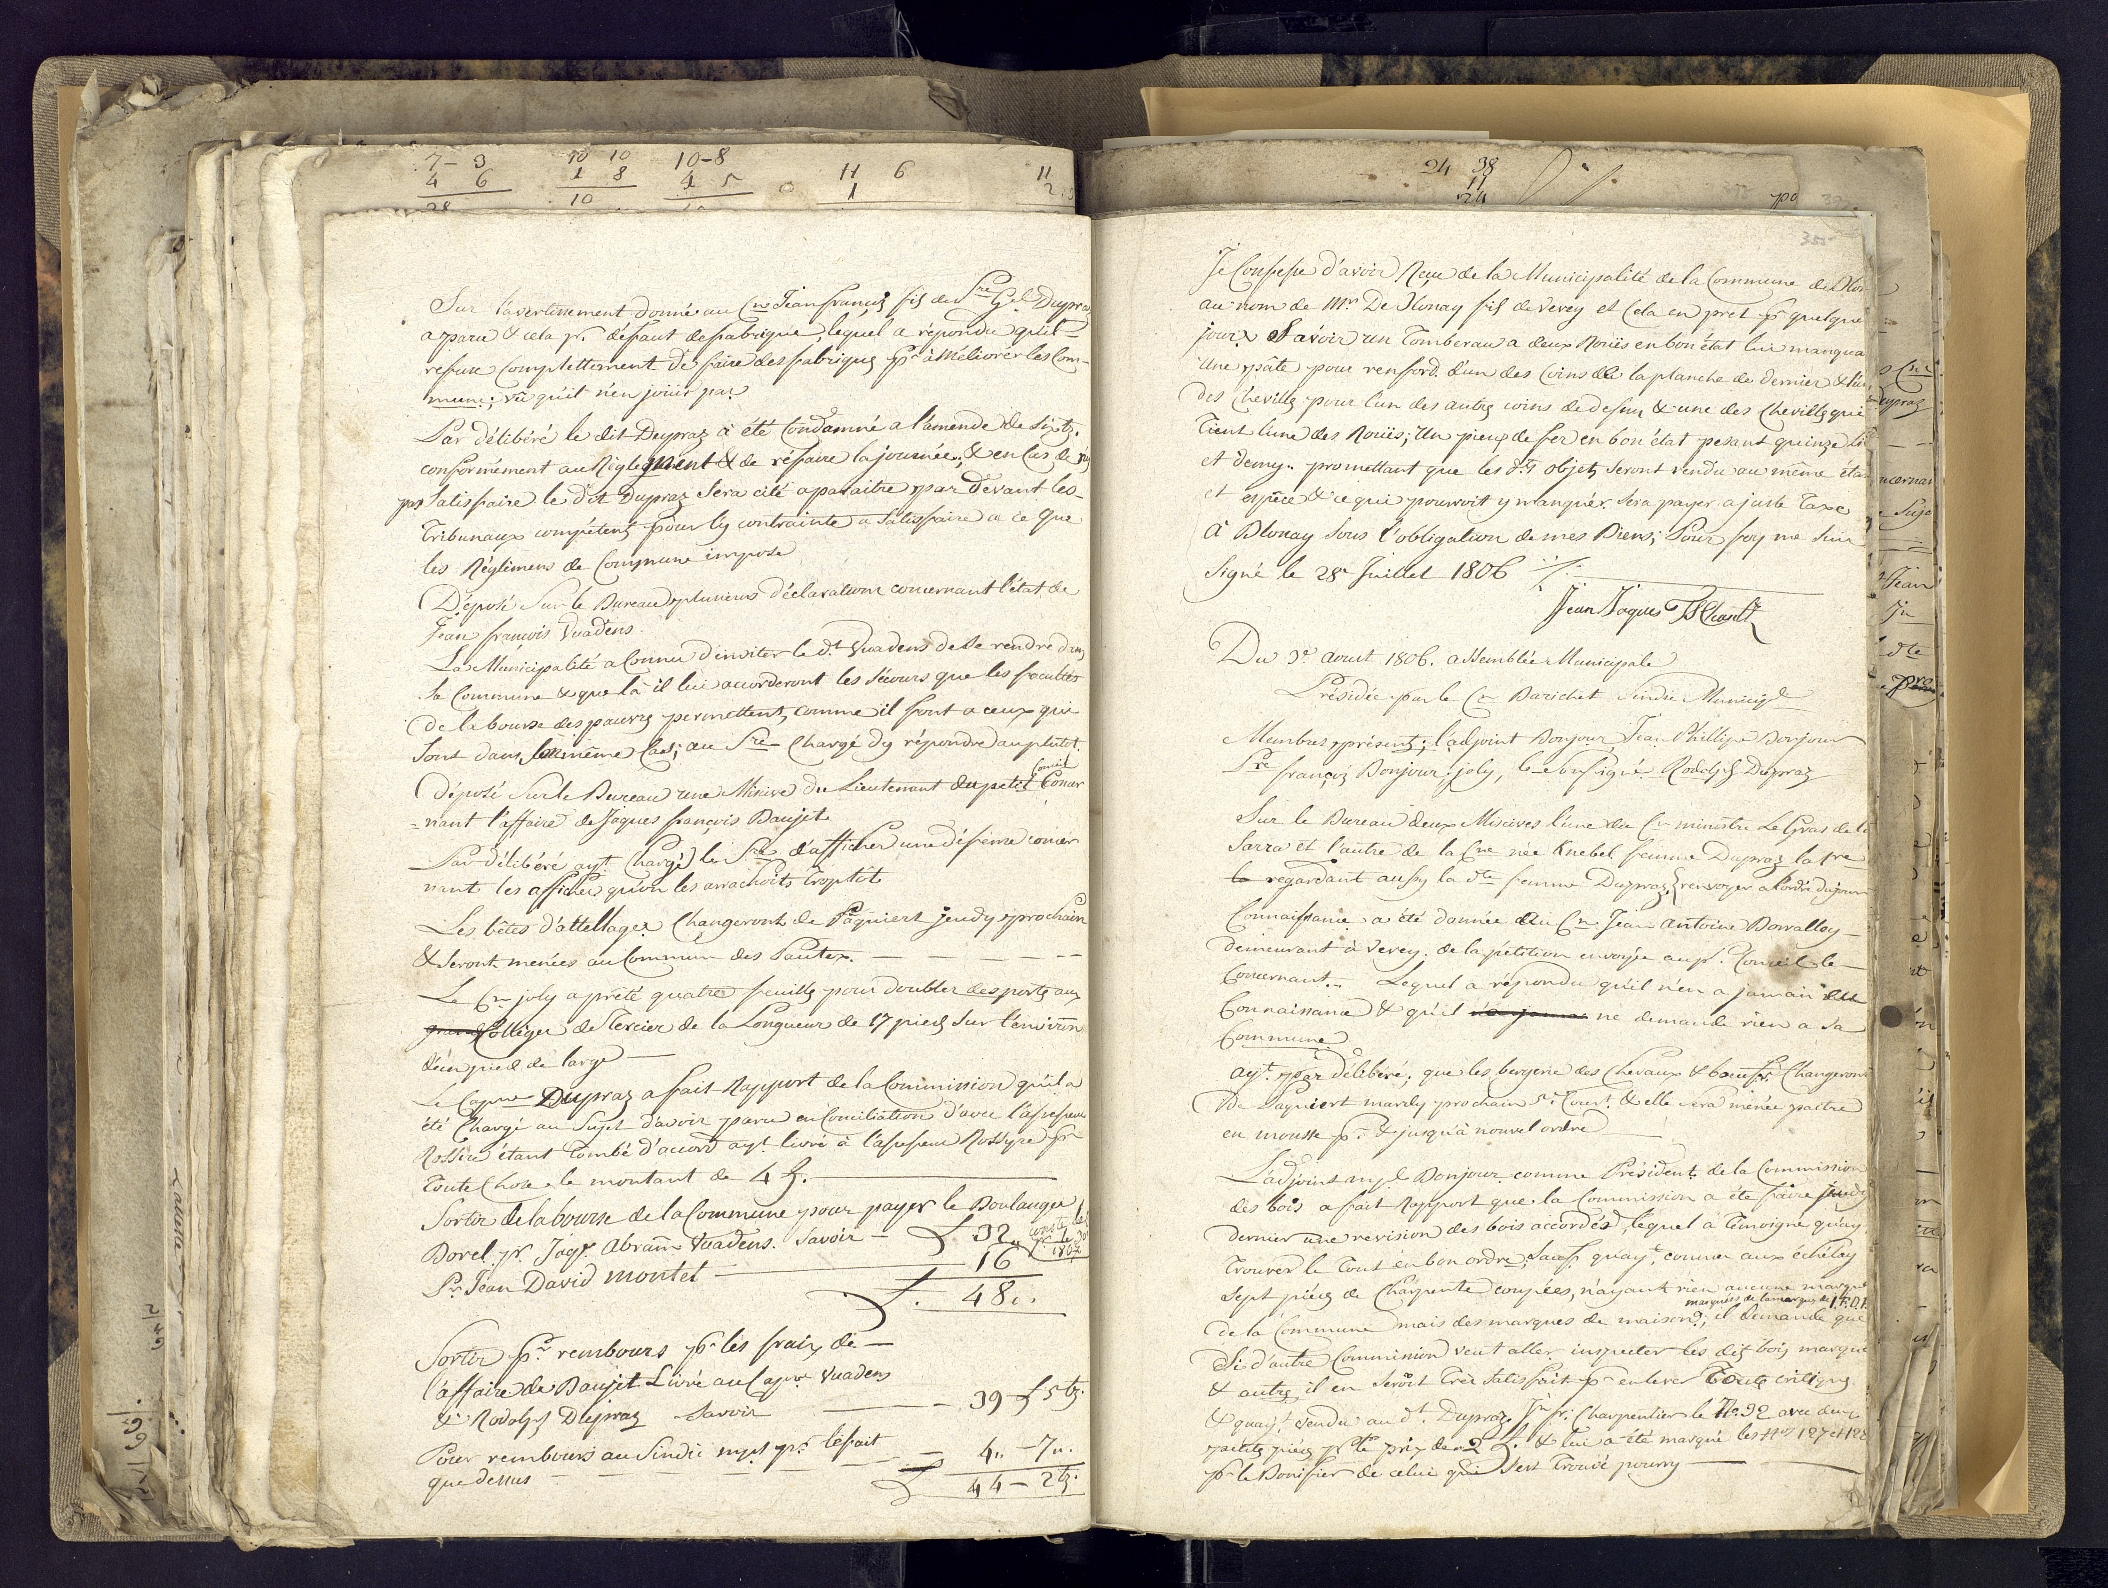 7 – 3 10 10 10 – 8 11 6 11
4 6 1 8 4 5 1 2
28 10
Sur l'avertissement donné au Cn Jean françois fils du Sre Gel Dupraz
a paru & cela pr. défaut de fabrique, lequel a répondu qu'il
refuse complettement de faire des fabriques pr améliorer les Com-
mune; vû qu'il n'en jouit pas
Par délibéré le dit Dupraz à été Condamné a l'amende de Six bz.
conformément au Réglement & de réfaire la journée; & en Cas de ny
pas Satisfaire le dit Dupraz Sera cité a paraitre par dévant les
Tribunaux compétents pour ly contrainte a Satisfaire a ce que
les Réglemens de Commune impose
Déposé Sur le Bureau plusieurs déclarations concernant l'état de
Jean françois Vuadens.
La Municipalité a Connu d'inviter le dt. Vuadens de Se rendre dans
Sa Commune & que là il lui accorderont les Sécours que les facultés
de la bourse des pauvres permettent, comme il font a ceux qui
Sont dans le même Cas; au Sre Chargé d'y répondre au plutôt.
Conseil
Déposé Sur le Bureau une Missive du Lieutenant du petit Concer
=nant l'affaire de Jaques françois Baujet
Par délibéré ayt. Chargé le Sre d'afficher une défense concer
nant les affiches qu'on les arrachoits trop tôt
Les bêtes d'attellages Changeront de Paquiers jeudy prochain
& Seront menées au Commun des Pautex.
Le Cn joly a prêté quatre feuilles pour doubler des portes aux
Colléges de Tercier de la Longueur de 17 pieds Sur l'environ
d'un pied de large
Le Capne Dupraz a fait Rapport de la Commission qu'il a
été Chargé au Sujet d'avoir paru en Conciliation d'avec l'assesseur
Rossire étant Tombé d'accord ayt. livré à l'assesseur Rossyre pr
toute Chose le montant de 4 f.
Sortir de la bourse de la Commune pour payer le Boulanger
Dorel pr. Jaqs. Abram Vuadens. Savoir – f 32..
Pr. Jean David montet 16
f. 48..
Sortir pr. rembours pr les fraix de
l'affaire de Baujet Livré au Capne Vuadens
& Rodolph Dupraz Savoir – 39 – f 5 bz.
Pour rembours au Sindic mpl pr. le fait 4.. – 7..
que dessus 44 – 2 bz.
24 38
11
24
355
Je Confesse d'avoir Reçu de la Municipalité de la Commune de Blon
au nom de Mr. De Blonay fils de Vevey et Cela en prêt pr quelque
jours Savoir un Tomberau a deux Roües en bon état lui manqua
Une pâte pour renford d'un des Coins de la planche de dernier & l'un
des Chevilles pour l'un des autres coins de dessus & une des Chevilles qui
Tient l'une des Roües; Un pieux de fer en bon état pesant quinze
et demy. promettant que les dts objets Seront rendu au même état
et espèce & ce qui pourroit y manquér Sera payer a juste Taxe
à Blonay Sous l'obligation de mes Biens; Pour foy me Suis
Signé le 28e Juillet 1806
Jean Jaques
Du 3e. aoust 1806. assemblée Municipale
Présidée par le Cn Barichet Sindic Municipl
Membres présents; l'adjoint Bonjour, Jean Phillipe Bonjour
Pre françois Bonjour, joly, le Soussigné Rodolph Dupraz
Sur le Bureau deux Missives l'une du Cn ministre Le Gras de la
Sarra et l'autre de la Cne née Knebel femme Dupraz la pre
regardant aussy la dte femme Dupraz, renvoyer a l'ordre du jour
Connaissance a été donnée au Cn Jean Antoine Borralley
demeurant à Vevey, de la pétition envoyée au pt. Conseil le
Concernant. Lequel a répondu qu'il n'en a jamais
Connaissance & qu'il ne demande rien a Sa
Commune
ayt. par délibéré; que les bergerie des Chevaux & boeufs Changeront
de Paquiert mardy prochain 5e Court. & elle sera menée paitre
en mousse pr. & jusqu'à nouvel ordre
L'adjoint mpl Bonjour comme Président de la Commission
des bois a fait Rapport que la Commission a été faire jeudy
dernier une révision des bois accordés, lequel a Temoigné qu'ay.
trouver le Tout en bon ordre, Sauf quayt. connu aux échéley
Sept pièces de Charpente coupées, n'ayant rien aucune marque
marquées de la marque de I. F. D. P.
de la Commune mais des marques de maisons; il demande que
Si d'autre Commission veut aller inspecter les dits bois marqué
& autres il en Seroit Très Satisfait pr enlever Toute critique
& quayt. vendu au dt. Dupraz Jn fs. Charpentier le No. 92 avec deux
petites pièces pr le prix de 2 f. & lui a été marqué les Nos 127 et 128
pr le Bonifier de celui qui S'est Trouvé pourry